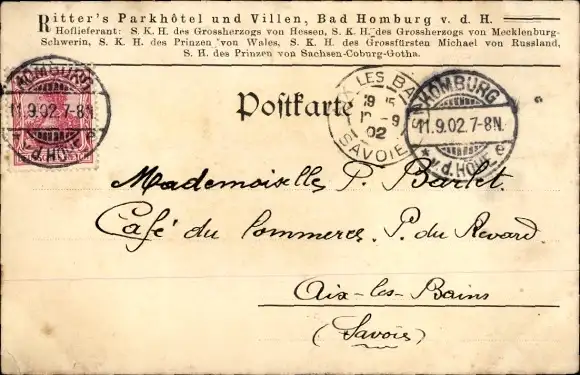 Ritter's Parkhôtel und Villen, Bad Homburg v. d. H.
Hoflieferant: S. K. H. des Grossherzogs von Hessen, S. K. H. des Grossherzogs von Mecklenburg-
Schwerin, S. K. H. des Prinzen von Wales, S. K. H. des Grossfürsten Michael von Russland,
S. H. des Prinzen von Sachsen-Coburg-Gotha.
HOMBURG
11.9.02.7-8N.
v.d.HÖHE
Postkarte
LES BAINS
19
02
SAVOIE
HOMBURG
11.9.02.7-8N.
v.d.HÖHE
Mademoiselle P. Barlet.
Café du Commerce. P. du Revard
Aix-les-Bains
(Savoie)